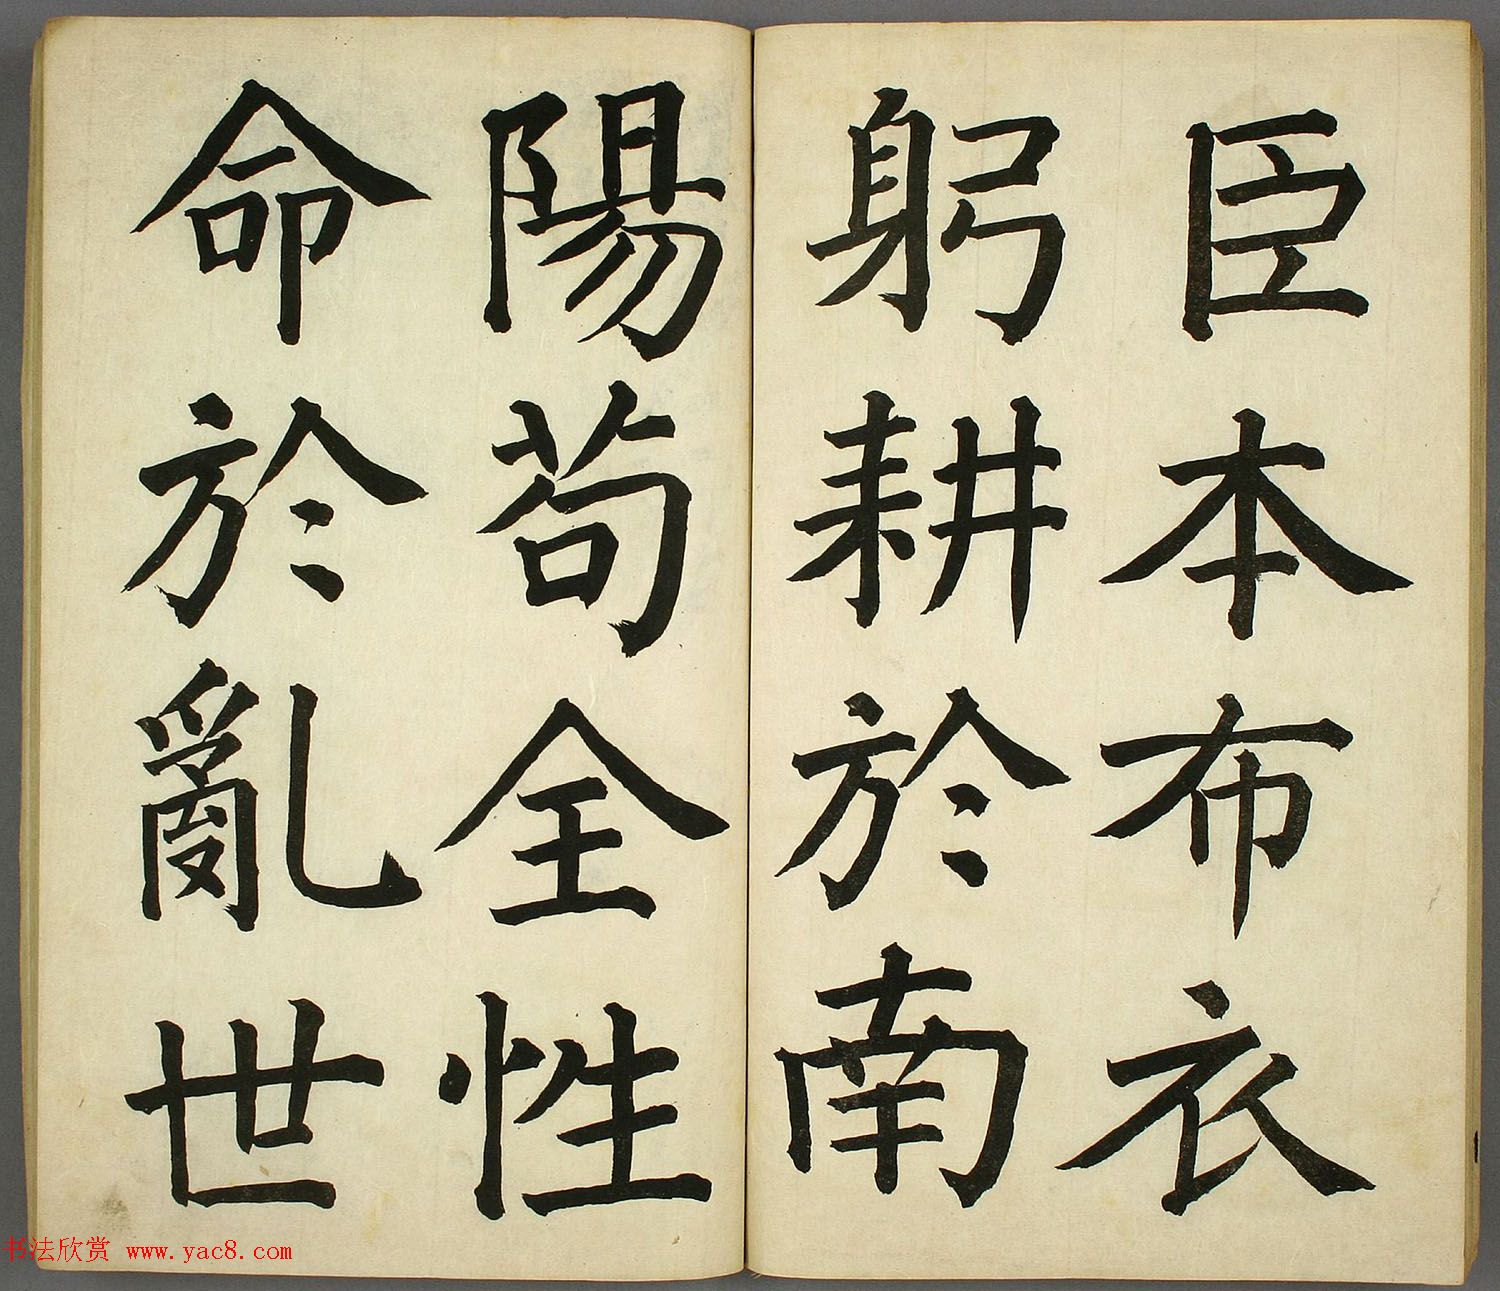 臣本布衣
躬耕於南
陽苟全性
命於亂世
书法欣赏 www.yac8.com